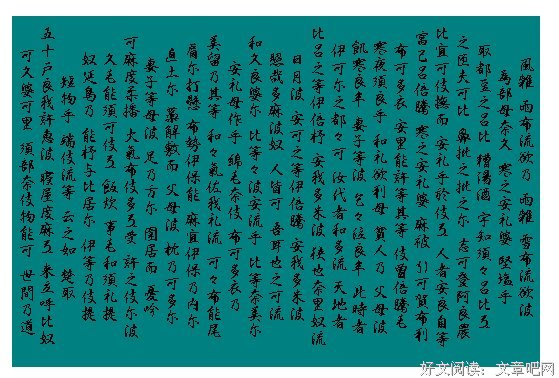 風雜 雨布流欲乃 雨雜 雪布流欲波
為部母奈久 寒之安礼婆 堅塩乎
取都豆之呂比 糟湯酒 宇知須々呂比弖
之叵夫可比 鼻批之批之尓 志可登阿良農
比宜可伎撫而 安礼乎於伎弖 人者安良自等
富己呂倍騰 寒之安礼婆 麻被 引可賀布利
布可多衣 安里能許等其等 伎曽倍騰毛
寒夜須良乎 和礼欲利母 貧人乃 父母波
飢寒良牟 妻子等波 乞々泣良牟 此時者
伊可尓之都々可 汝代者和多流 天地者
比呂之等伊倍杼 安我多米波 狭也奈里奴流
日月波 安可之等伊倍騰 安我多米波
照哉多麻波奴 人皆可 吾耳也之可流
和久良婆尓 比等々波安流乎 比等奈美尓
安礼母作乎 綿毛奈伎 布可多衣乃
美留乃其等 和々氣佐我礼流 可々布能尾
肩尓打懸 布勢伊保能 麻宜伊保乃内尓
直土尓 藁解敷而 父母波 枕乃可多尓
妻子等母波 足乃方尓 圍居而 憂吟
可麻度柔播 火氣布伎多弖受 許之伎尓波
久毛能須可伎弖 飯炊 事毛和須礼提
奴延鳥乃 能杼与比居尓 伊等乃伎提
短物乎 端伎流等 云之如 楚取
五十戸良我許恵波 寝屋度麻弖 来立呼比奴
可久婆可里 須部奈伎物能可 世間乃道
好文阅读：文章吧网